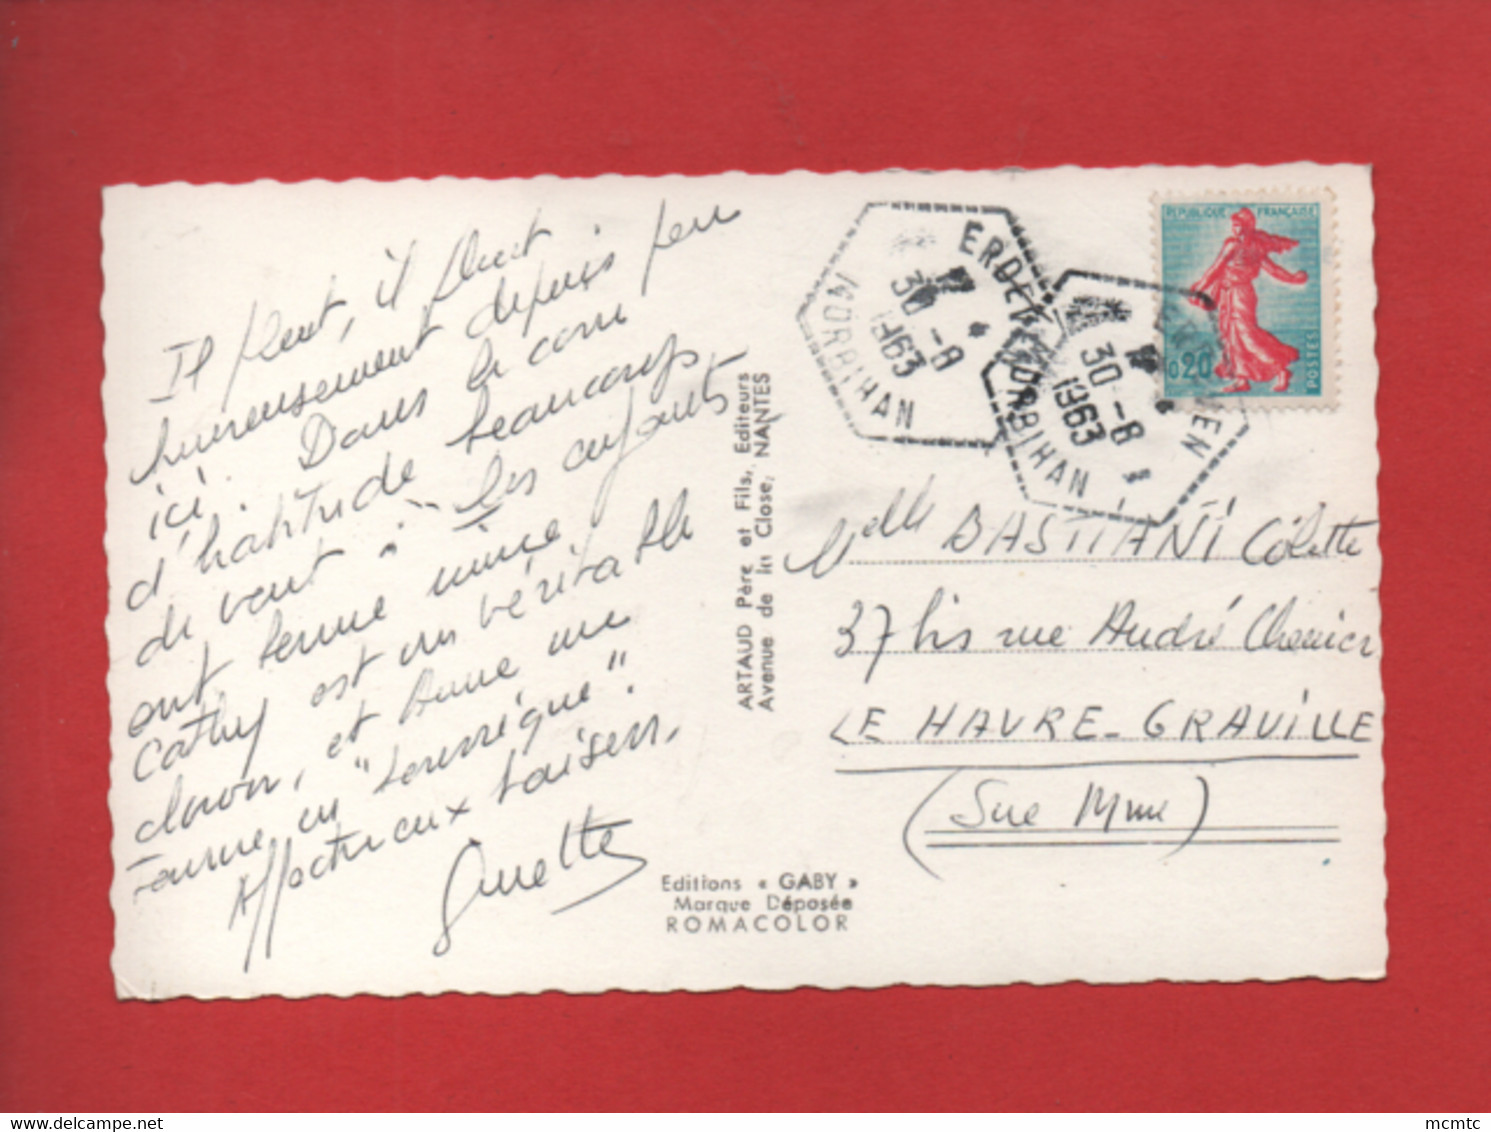 Il pleut, il pleut
heureusement depuis peu
ici. Dans le coin
d'habitude beaucoup
de vent. Les enfants
ont bonne mine.
Cathy est un véritable
clown, et Anne une
Affectueux baisers.
Ginette
ARTAUD Père et Fils, Editeurs
Avenue de la Close, NANTES
Editions « GABY »
Marque Déposée
ROMACOLOR
ERDEVEN
12
30-8
1963
MORBIHAN
ERDEVEN
12
30-8
1963
MORBIHAN
REPUBLIQUE FRANÇAISE
0,20
POSTES
Melle BASTIANI Colette
37 bis rue André Chenier
LE HAVRE-GRAVILLE
(Sne Mme)
mcmtc